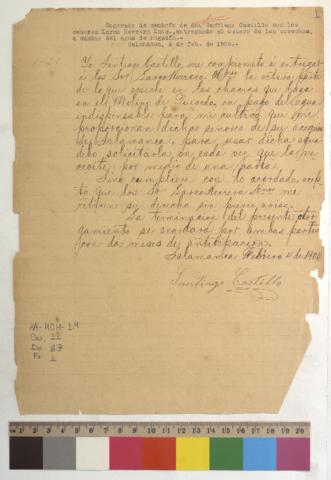 1
Contrato de zembría de don Santiago Castillo con los
señores Larso Herrera Hnos., entregando el octavo de las cosechas,
a cambio del agua de regadío.-
Salamanca, 4 de feb. de 1900.-
Yo Santiago Castillo me comprometo á entregar
á los Sres. Herrera Hnos la octava parte
de lo que coseche en las chacras que haga
en el Molino de en pago del agua
indispensable para mi cultivo que me
proporcionan dichos señores de su acequia
de Salamanca, para usar dicha agua
debo solicitarla en cada vez que la ne-
cesite por medio de una
Sino cumpliese con lo acordado, acep-
to que los Sres Herrera Hnos me
retiren su derecho sin previo aviso.
La terminacion del presente otor-
gamiento se acordará por ambas partes
con dos meses de anticipacion.
Salamanca Febrero 4 de 1900
Santiago Castillo
AA-HCH-LM
Ca. 12
Do. 87
Fo. 1
1 2 3 4 5 6 7 8 9 10 11 12 13 14 15 16 17 18 19 20